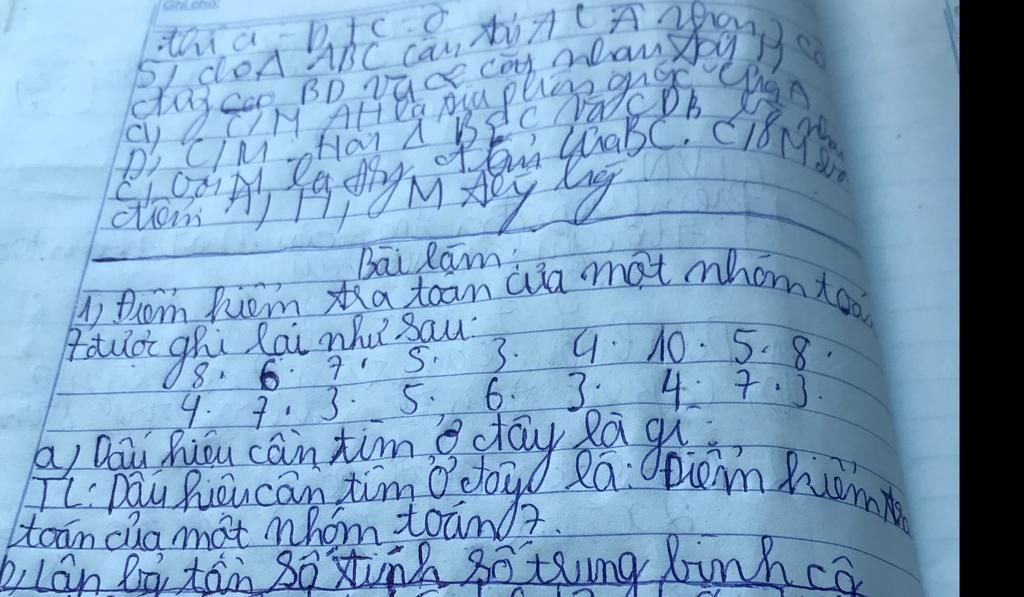 Ghi chú:
thì a - b + c = 0
5) cho Δ ABC cân tại A ( A nhọn) có
đường cao BD và CE cắt nhau tại H
a) C/M AH là tia phân giác của A
b) C/M Hai Δ BEC và CDB
c) Gọi M là trung điểm của BC. C/M
điểm A, H, M thẳng hàng
Bài làm:
1) Điểm kiểm tra toán của một nhóm toán
7 được ghi lại như sau:
8. 6. 7. 5. 3. 4. 10. 5. 8.
4. 7. 3. 5. 6. 3. 4. 7. 3.
a) Dấu hiệu cần tìm ở đây là gì.
TL: Dấu hiệu cần tìm ở đây là: Điểm kiểm tra
toán của một nhóm toán 7.
b, Lập bả tần số tính số trung bình cộ